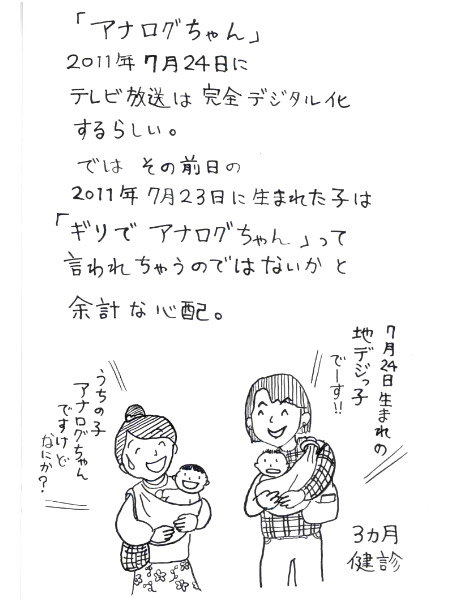 「アナログちゃん」
2011年7月24日に
テレビ放送は完全デジタル化
するらしい。
では その前日の
2011年7月23日に生まれた子は
「ギリで アナログちゃん」って
言われちゃうのではないかと
余計な心配。
7月24日生まれの
地デジっ子
でーす!!
うちの子
アナログちゃん
ですけど
なにか?
3カ月
健診